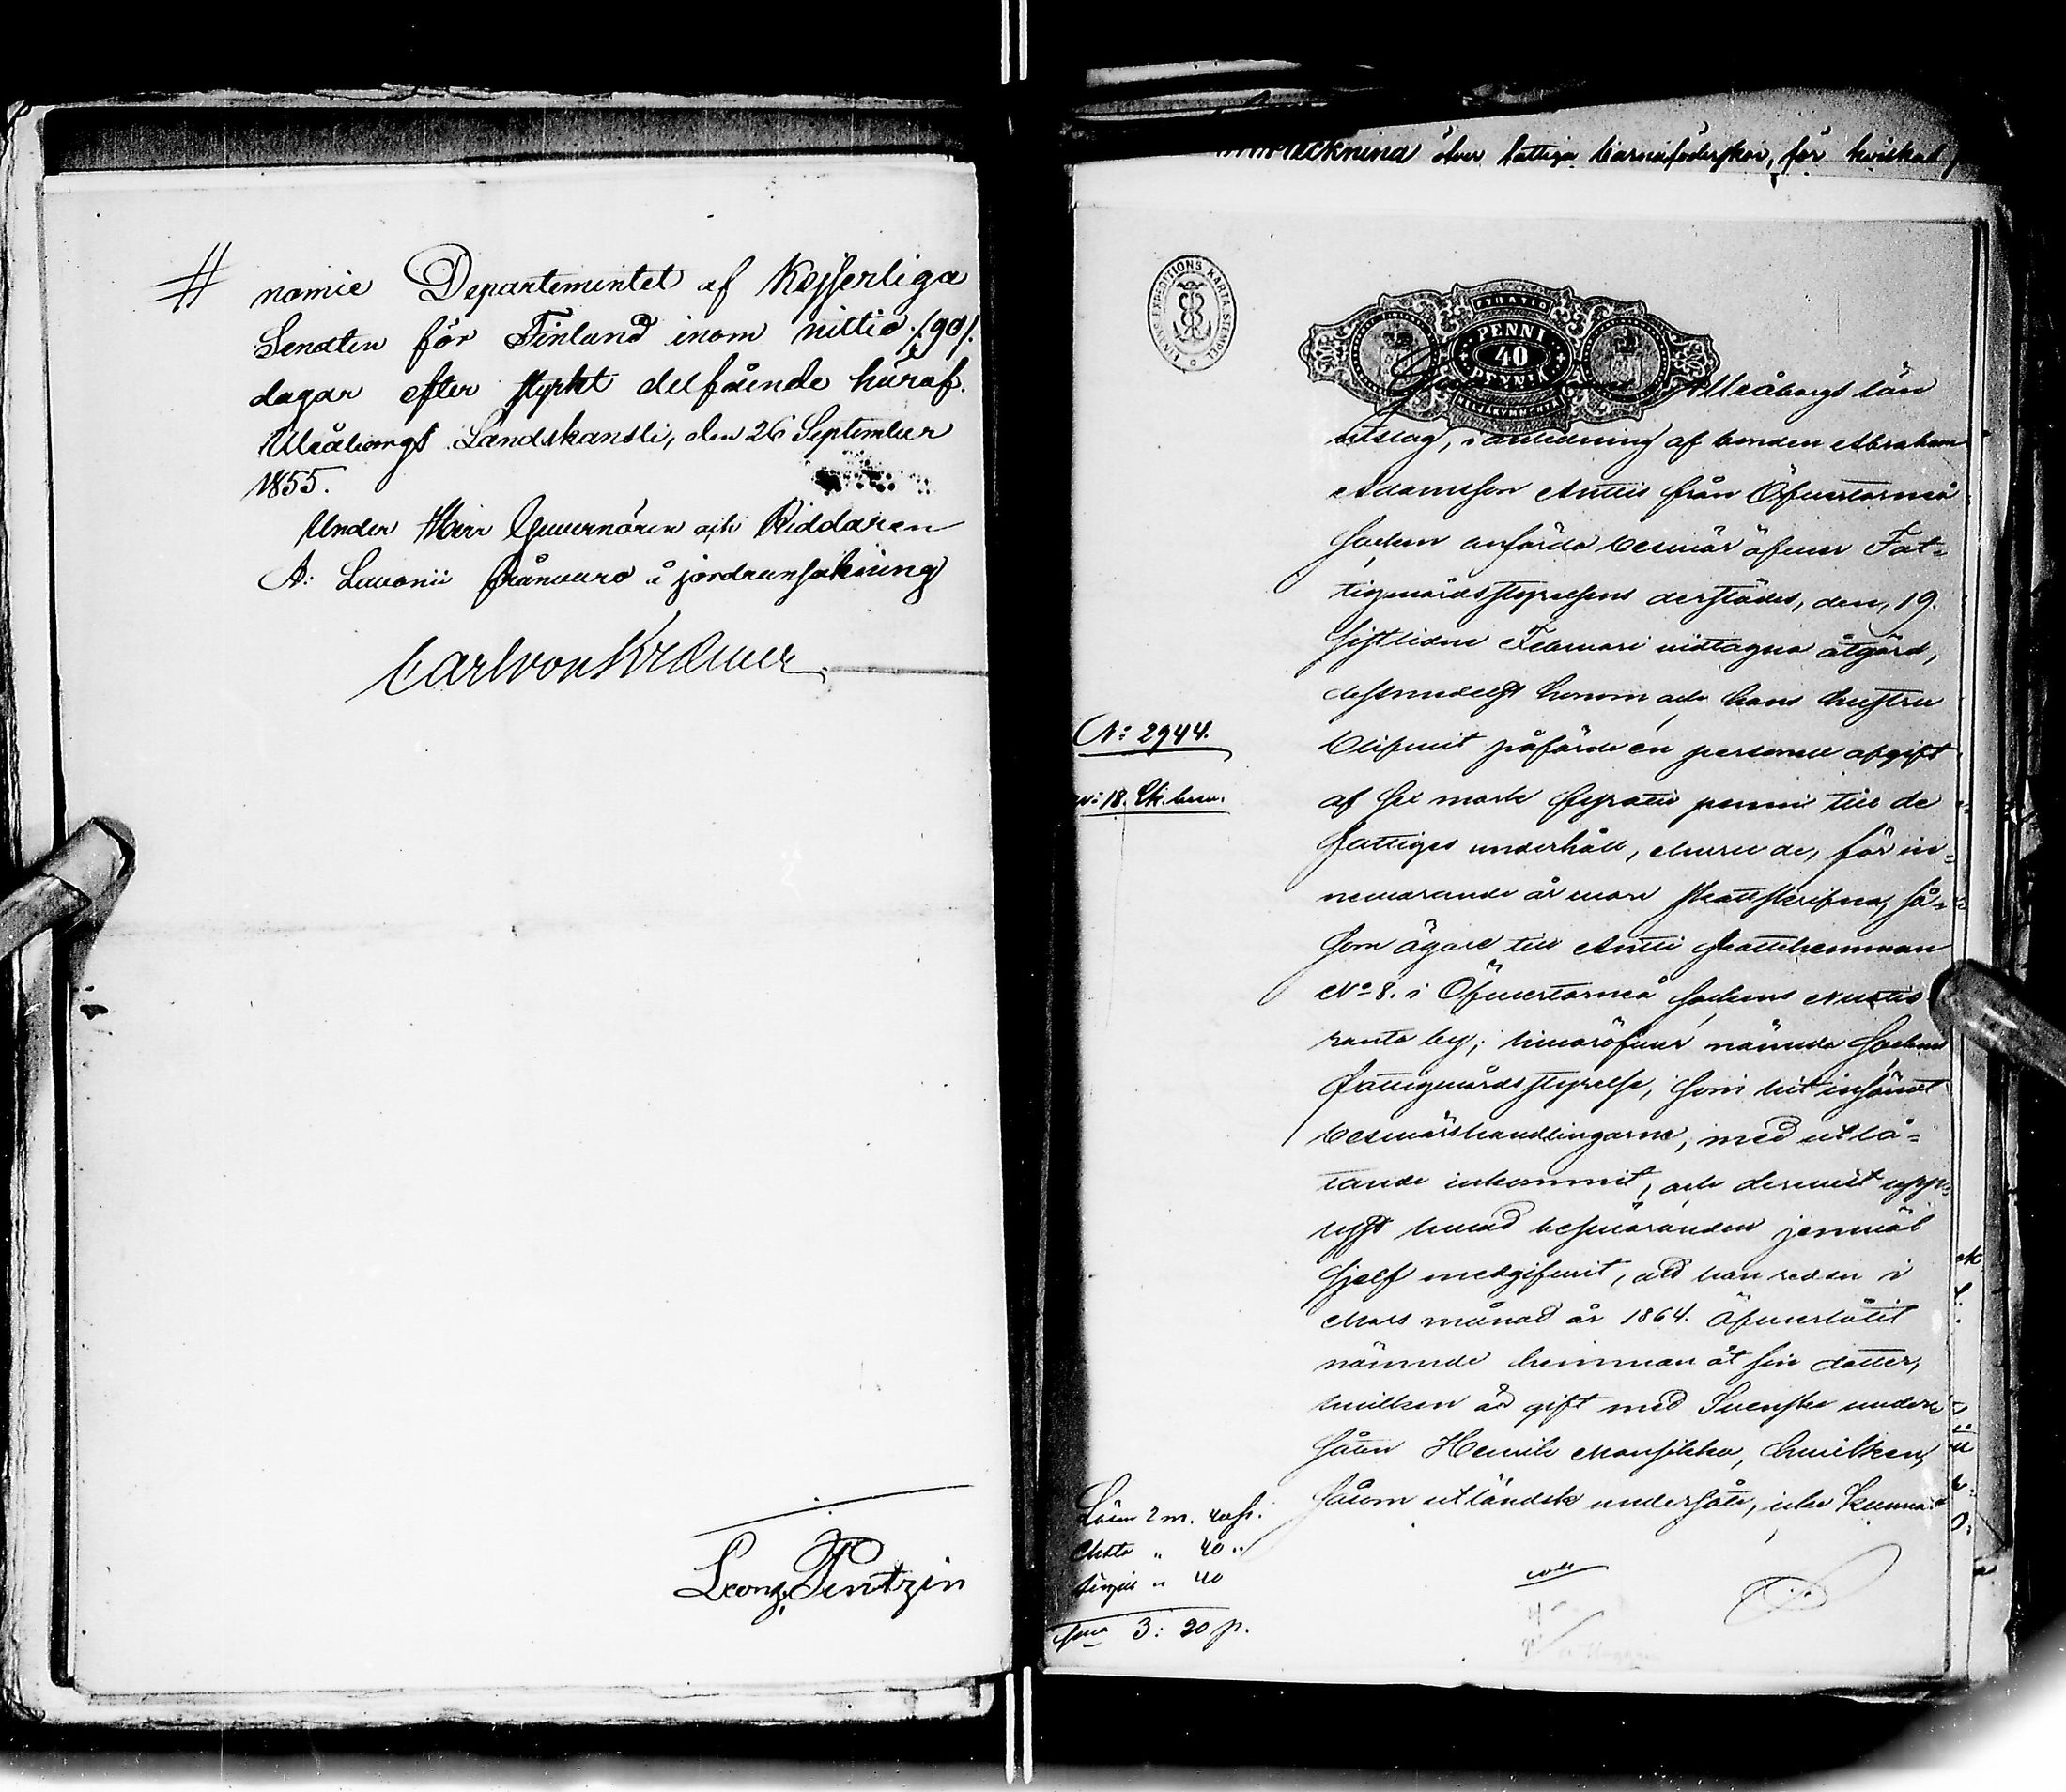 # nomie Departementet af Kejserliga
Senaten för Finland inom nittio /:90/.
dagar efter styrkt delfående häraf.
Uleåborgs Landskansli, den 26 September
1855.
Under Herr Guvernören och Riddaren
A: Lavonii frånvaro å jordransakning
Carl von Kræmer
Leonh. Pentzin
teckning öfver fattiga barnaföderskor, för hvilka
FINLANDS EXPEDITIONS KARTA STEMPEL
FYRATIO
PENNI
40
ПЕННИ
NELJÄKYMMENTÄ
i Uleåborgs län
utslag, i anledning af bonden Abraham
Adamsson Anttis från Öfvertorneå
Socken anförda besvär öfver Fat-
tigvårdsstyrelsens derstädes, den 19.
sistlidne Februari vidtagna åtgärd,
dessmedelst honom och hans hustru
blifvit påförde en personell afgift
af sex mark fyratio penni till de
fattiges underhåll, ehuru de, för in-
nevarande år voro skattskrifna, så-
som ägare till Antti skattehemman
No 8. i Öfvertorneå sockens
ranta by; hvaröfver nämnde Sockens
fattigvårdsstyrelse, som hit insändt
besvärshandlingarne, med utlå-
tande inkommit, och dervid upp-
lyst hurusom besväranden jemväl
sjelf medgifvit, att han redan i
Mars månad år 1864. Öfverlåtit
nämnde hemman åt sin dotter,
hvilken är gift med Svenske under-
såten Henrik Mansikka, hvilken,
såsom utländsk undersåte, icke kunnat
No 2944.
Lösen 2 m. 40 p.
Charta " 40 "
" 40
Sma 3: 20 p.